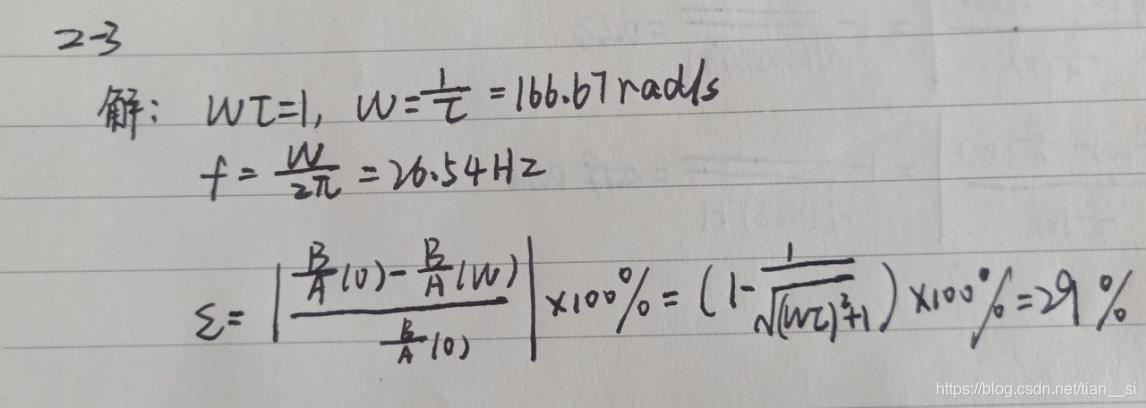 2-3
解: Wτ=1, W=1/τ=166.67rad/s
f=W/2π=26.54HZ
Σ=|(B/A(0)-B/A(W))/(B/A(0))|×100%=(1-1/√((Wτ)²+1))×100%=29%
https://blog.csdn.net/tian__si